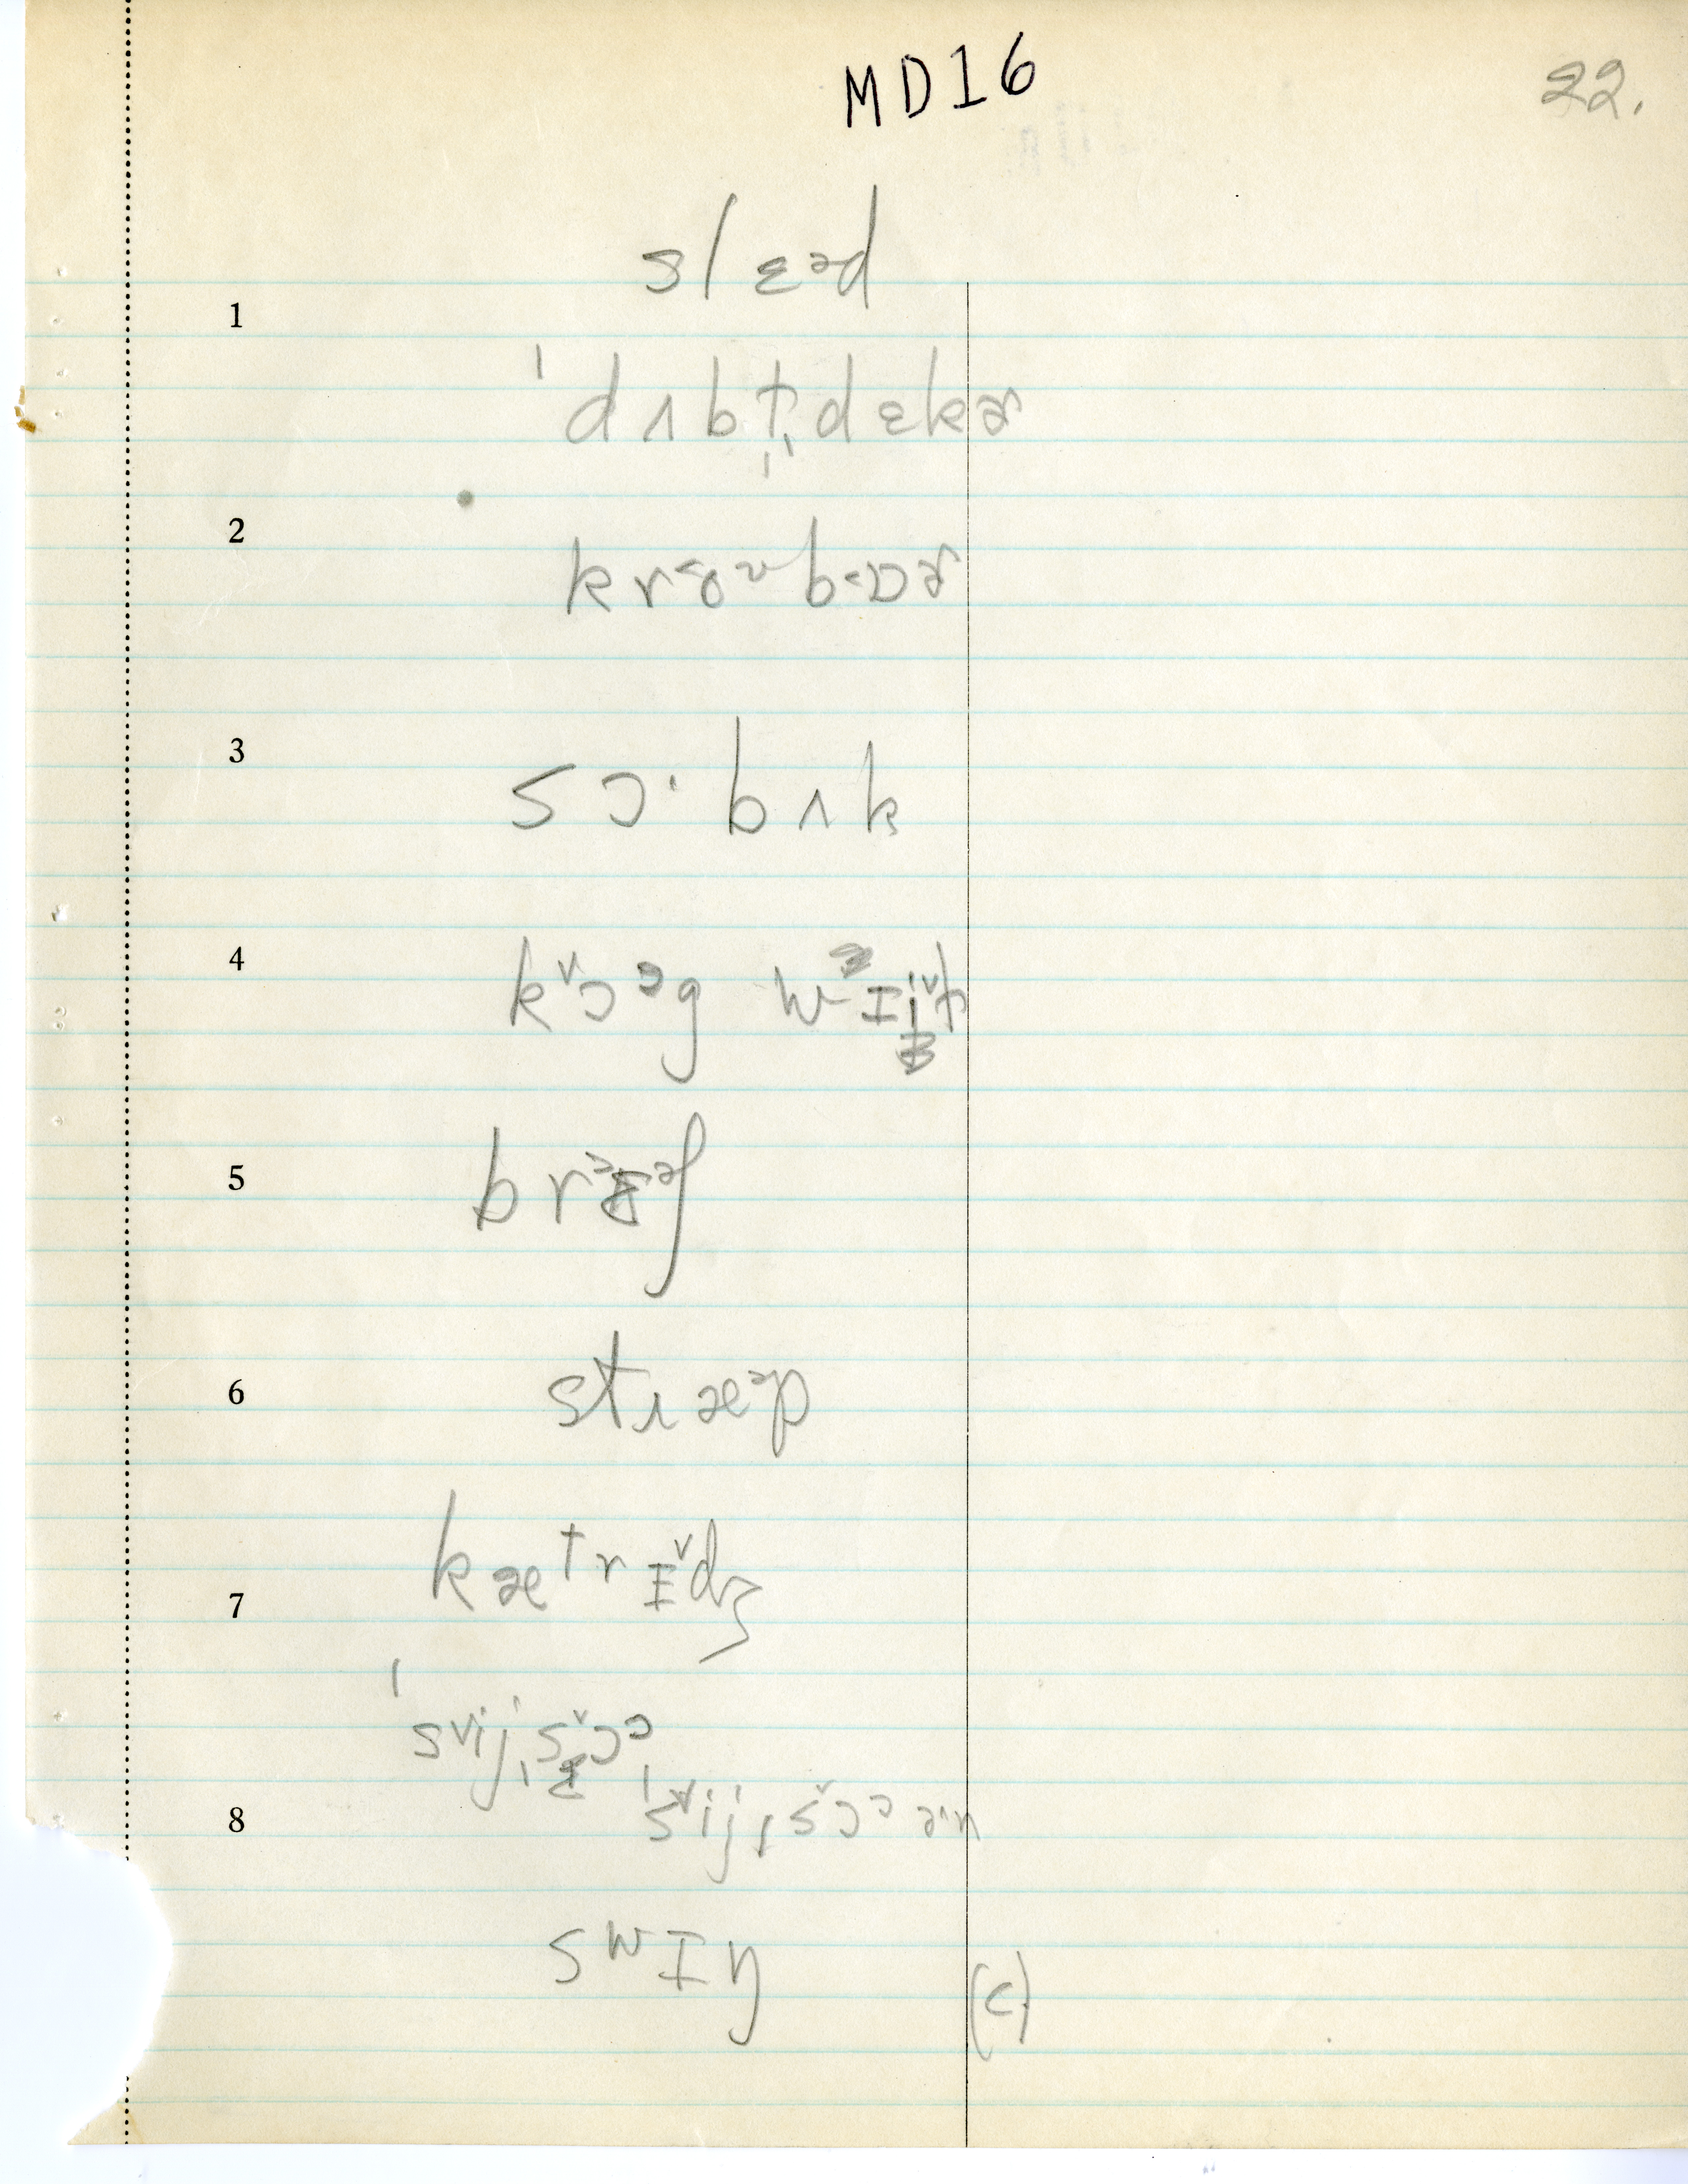 MD16
22.
slɛᵊd
1
ˈdʌbt̬ˌdɛkɚ
2
krɔ˞ᵘbɑɚ
3
sɔ·bʌk
4
k˅ɔᵊg wᵊɪi˅t
5
brᵊɛᵊʃ
6
stɹæᵊp
7
kætrɪ˅dʒ
ˈs˅ijˌs˅ɔᵓ
8
ˈs˅ijˌs˅ɔᵓ ə·n
swɪŋ
(c)